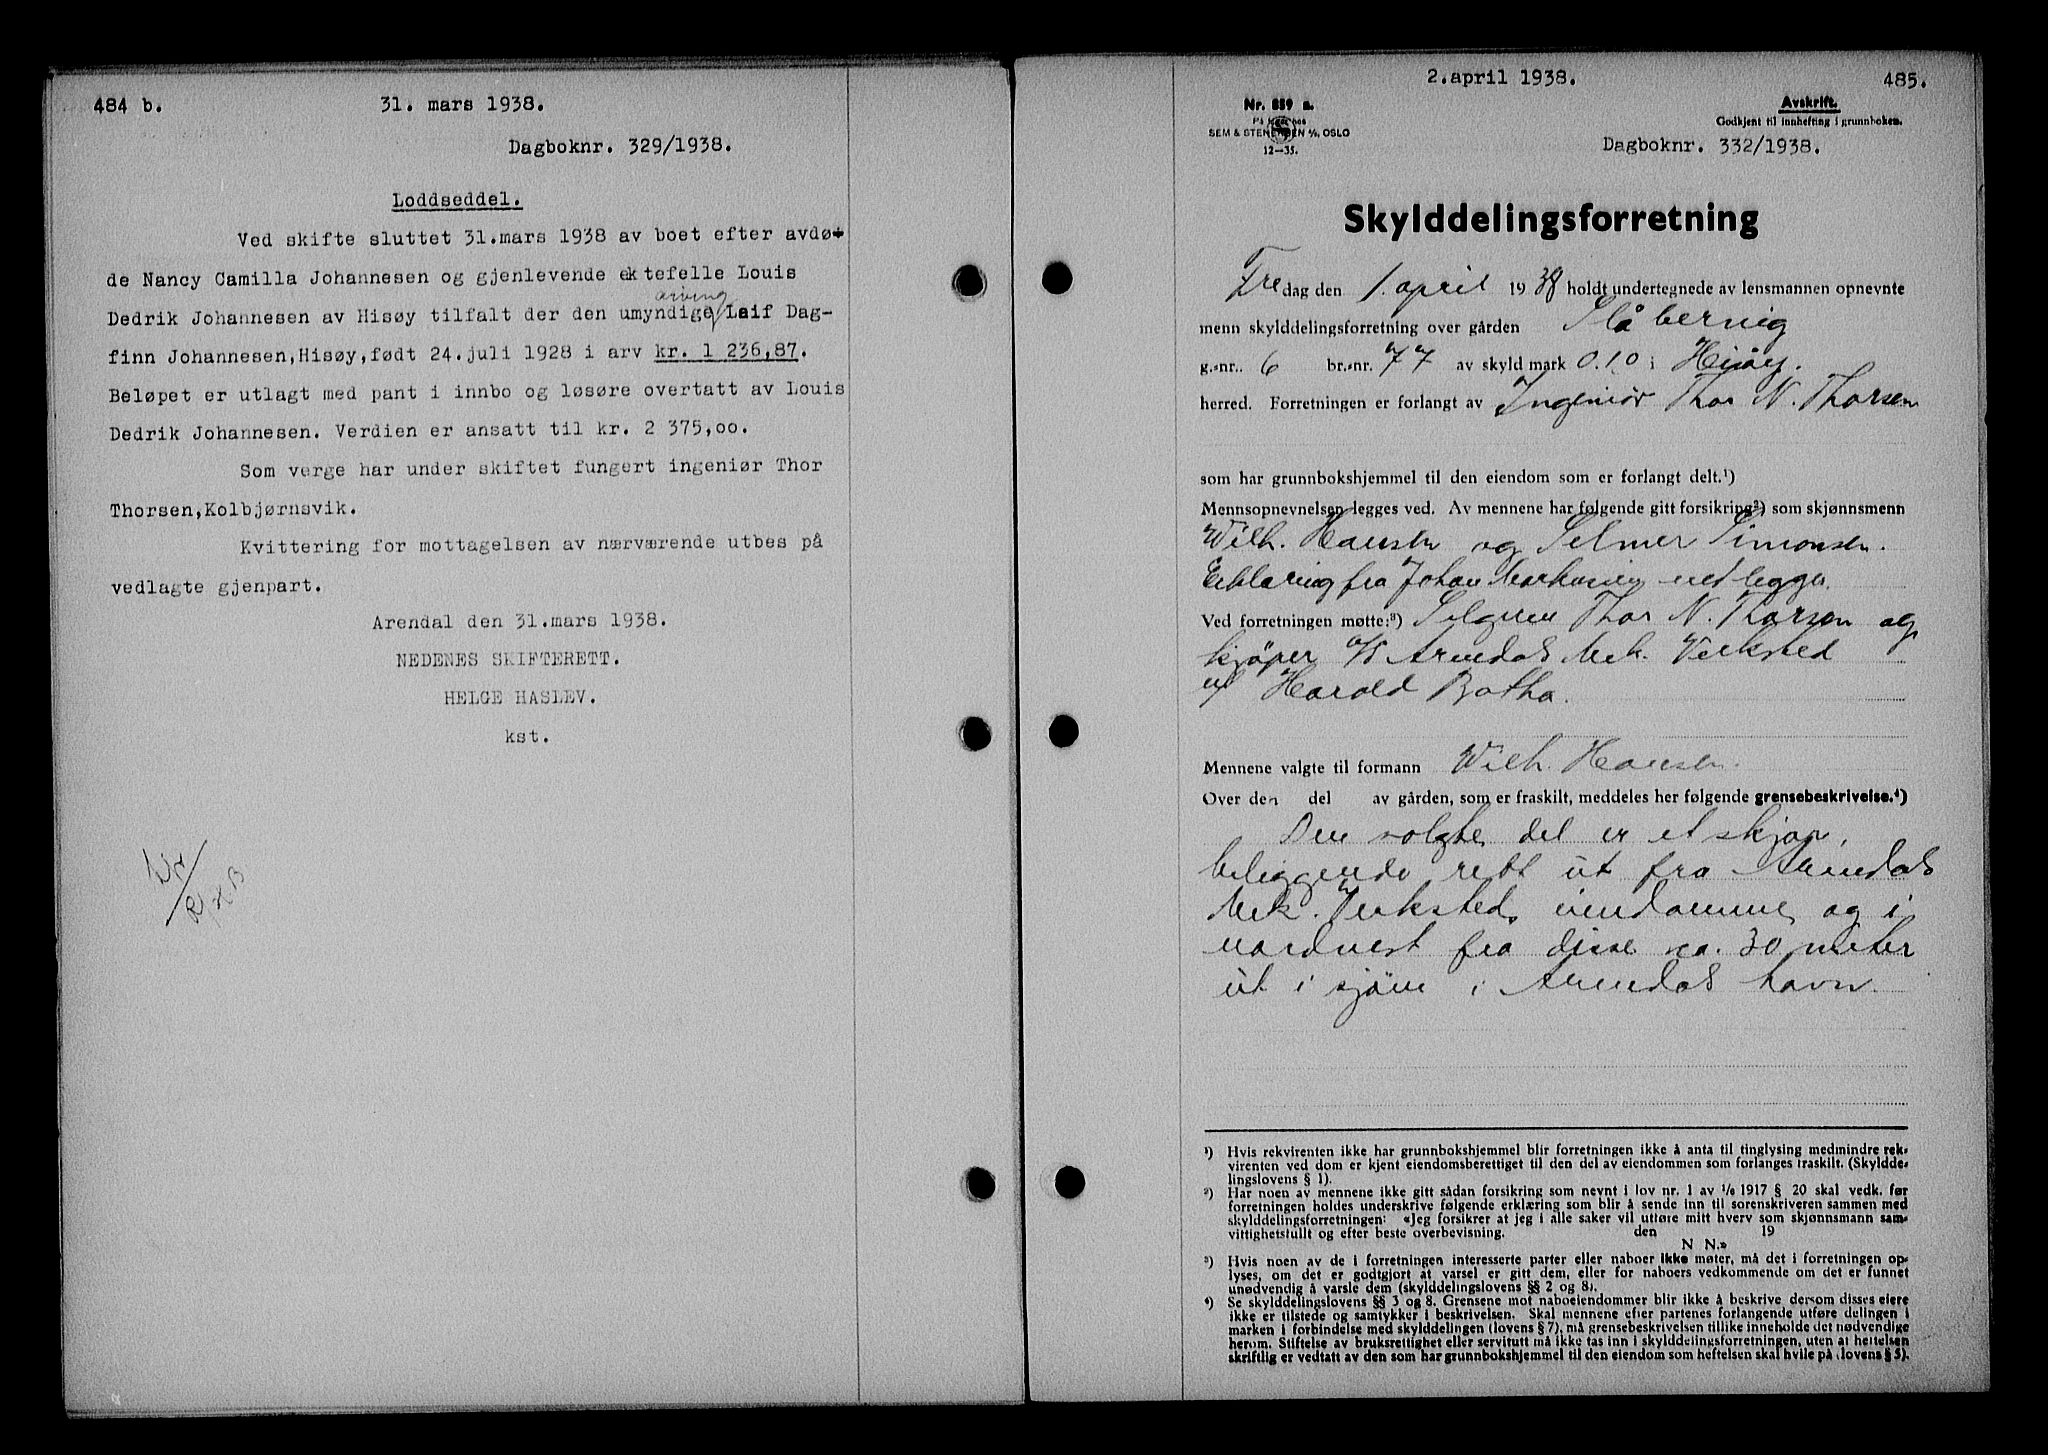 484 b.
31. mars 1938.
Dagboknr. 329/1938.
Loddseddel.
Ved skifte sluttet 31.mars 1938 av boet efter avdø-
de Nancy Camilla Johannesen og gjenlevende ektefelle Louis
arving
Dedrik Johannesen av Hisøy tilfalt der den umyndige Leif Dag-
finn Johannesen,Hisøy,født 24.juli 1928 i arv kr. 1 236,87.
Beløpet er utlagt med pant i innbo og løsøre overtatt av Louis
Dedrik Johannesen. Verdien er ansatt til kr. 2 375,oo.
Som verge har under skiftet fungert ingeniør Thor
Thorsen,Kolbjørnsvik.
Kvittering for mottagelsen av nærværende utbes på
vedlagte gjenpart.
Arendal den 31.mars 1938.
NEDENES SKIFTERETT.
HELGE HASLEV.
kst.
2.april 1938.
485.
Nr. 859 a.
Avskrift.
Godkjent til innhefting i grunnboken.
SEM & STENERSEN A/S, OSLO
12—35.
Dagboknr. 332/1938.
Skylddelingsforretning
Fredag den 1. april 1938 holdt undertegnede av lensmannen opnevnte
menn skylddelingsforretning over gården Slåbervig
g.-nr.. 6 br.-nr. 77 av skyld mark 0.10 i Hisøy.
herred. Forretningen er forlangt av Ingeniør Thor N. Thorsen
som har grunnbokshjemmel til den eiendom som er forlangt delt.¹)
Mennsopnevnelsen legges ved. Av mennene har følgende gitt forsikring²) som skjønnsmenn
Wilh. Hansen og Selmer Simonsen.
Erklæring fra Johan Markussen vedlegges.
Ved forretningen møtte:³) Selgeren Thor N. Thorsen og
kjøper A/S Arendals Mek. Verksted
v/ Harald Botha.
Mennene valgte til formann Wilh. Hansen.
Over den del av gården, som er fraskilt, meddeles her følgende grensebeskrivelse.⁴)
Den solgte del er et skjær,
beliggende rett ut fra Arendals
Mek. Verksteds eiendommer og i
nordvest fra disse ca. 30 meter
ut i sjøen i Arendals havn.
¹) Hvis rekvirenten ikke har grunnbokshjemmel blir forretningen ikke å anta til tinglysing medmindre rek-
virenten ved dom er kjent eiendomsberettiget til den del av eiendommen som forlanges fraskilt. (Skyldde-
lingslovens § 1).
²) Har noen av mennene ikke gitt sådan forsikring som nevnt i lov nr. 1 av 1/6 1917 § 20 skal vedk. før
forretningen holdes underskrive følgende erklæring som blir å sende inn til sorenskriveren sammen med
skylddelingsforretningen: «Jeg forsikrer at jeg i alle saker vil utføre mitt hverv som skjønnsmann sam-
vittighetsfullt og efter beste overbevisning. den 19
N N.»
³) Hvis noen av de i forretningen interesserte parter eller naboer ikke møter, må det i forretningen op-
lyses, om det er godtgjort at varsel er gitt dem, eller for naboers vedkommende om det er funnet
unødvendig å varsle dem (skylddelingslovens §§ 2 og 8).
⁴) Se skylddelingslovens §§ 3 og 8. Grensene mot naboeiendommer blir ikke å beskrive dersom disses eiere
ikke er tilstede og samtykker i beskrivelsen. Skal mennene efter partenes forlangende utføre delingen i
marken i forbindelse med skylddelingen (lovens § 7), må grensebeskrivelsen tillike inneholde det nødvendige
herom. Stiftelse av bruksrettighet eller servitutt må ikke tas inn i skylddelingsforretningen, uten at heftelsen
skriftlig er vedtatt av den som har grunnbokshjemmel til den eiendom som heftelsen skal hvile på (lovens § 5).